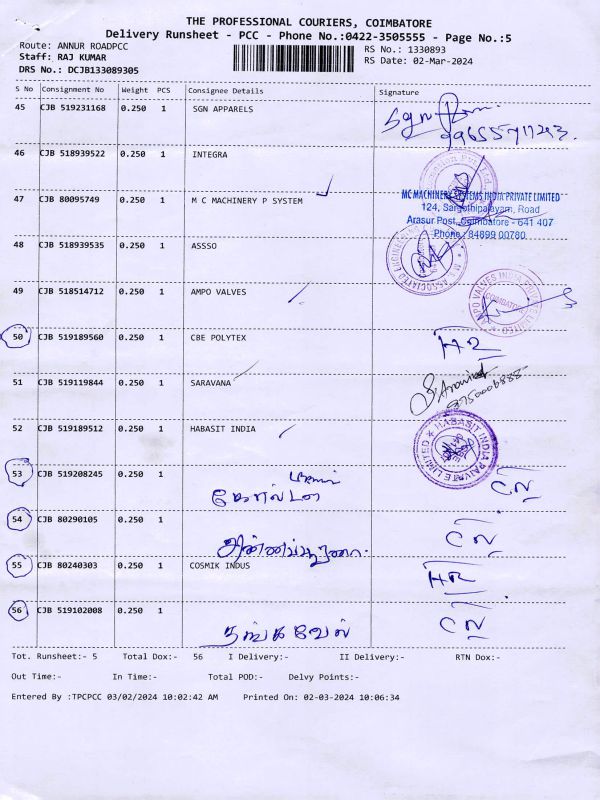 THE PROFESSIONAL COURIERS, COIMBATORE
Delivery Runsheet - PCC - Phone No.:0422-3505555 - Page No.:5
Route: ANNUR ROADPCC RS No.: 1330893
Staff: RAJ KUMAR RS Date: 02-Mar-2024
DRS No.: DCJB133089305
S No Consignment No Weight PCS Consignee Details Signature
45 CJB 519231168 0.250 1 SGN APPARELS Sgn
46 CJB 518939522 0.250 1 INTEGRA
47 CJB 80095749 0.250 1 M C MACHINERY P SYSTEM MC MACHINERY SYSTEMS INDIA PRIVATE LIMITED
124, Road
Arasur Post, Coimbatore - 641 407
Phone : 84899 00780
48 CJB 518939535 0.250 1 ASSSO
49 CJB 518514712 0.250 1 AMPO VALVES AMPO VALVES INDIA PRIVATE LIMITED COIMBATORE
50 CJB 519189560 0.250 1 CBE POLYTEX HR
51 CJB 519119844 0.250 1 SARAVANA Aravind
52 CJB 519189512 0.250 1 HABASIT INDIA HABASIT INDIA PRIVATE LIMITED
53 CJB 519208245 0.250 1 CN
54 CJB 80290105 0.250 1 CN
55 CJB 80240303 0.250 1 COSMIK INDUS HR
56 CJB 519102008 0.250 1 தங்கவேல் CN
Tot. Runsheet:- 5 Total Dox:- 56 I Delivery:- II Delivery:- RTN Dox:-
Out Time:- In Time:- Total POD:- Delvy Points:-
Entered By :TPCPCC 03/02/2024 10:02:42 AM Printed On: 02-03-2024 10:06:34